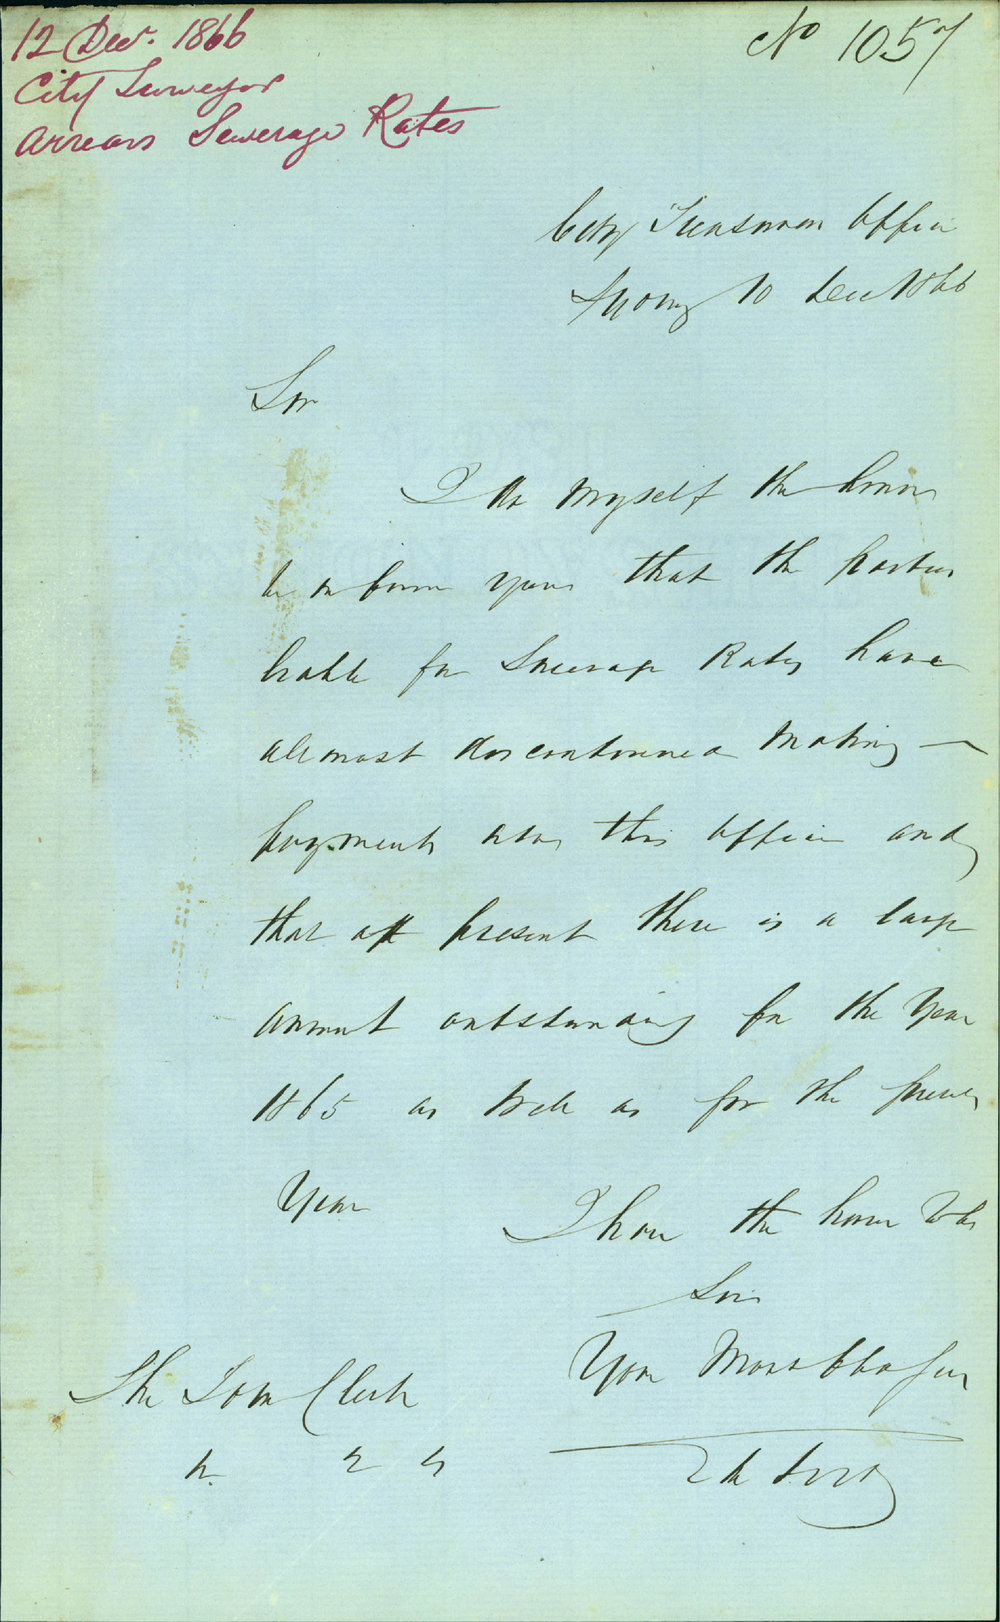 12 Decr. 1866
City Surveyor
Arrears Sewerage Rates
No 1057
City Treasurers Office
Sydney 10 Dec 1866
Sir
I do myself the honor
to inform you that the parties
liable for Sewerage Rates have
allmost discontinued making
payments at this office and
that at present there is a large
amount outstanding for the Year
1865 as well as for the present
Year
I have the honor to be
Sir
Your Most Obt Ser
The Town Clerk